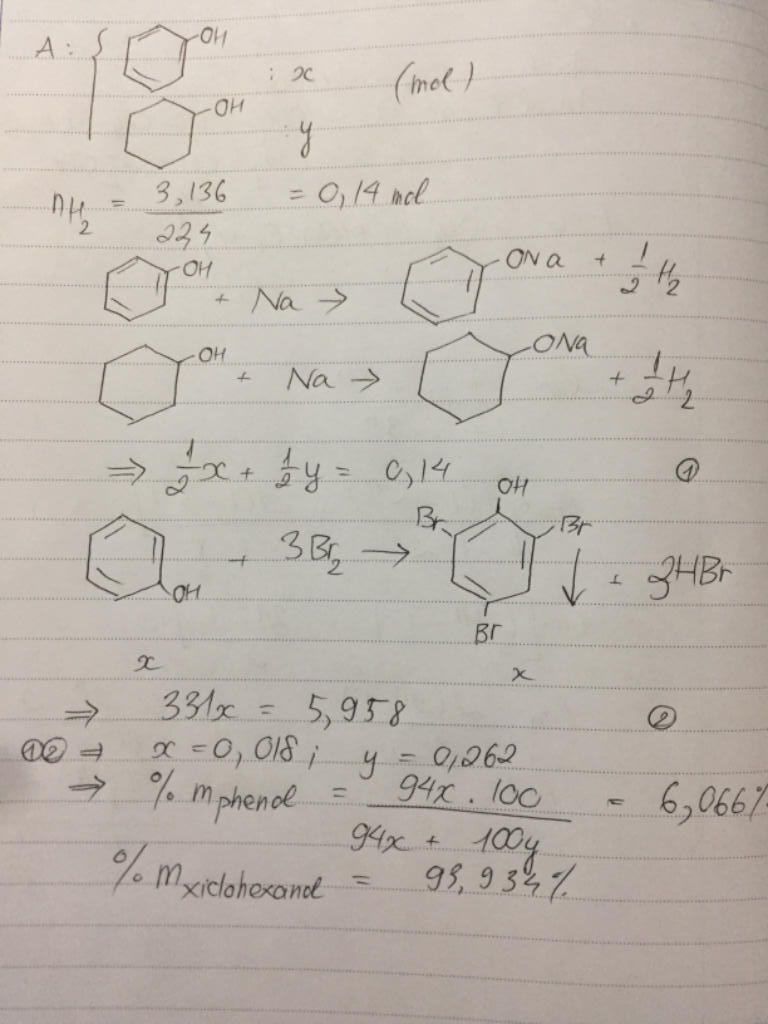 A : { OH : x (mol)
OH : y
nH2 = 3,136 / 22,4 = 0,14 mol
OH + Na → ONa + 1/2 H2
OH + Na → ONa + 1/2 H2
⇒ 1/2 x + 1/2 y = 0,14 ①
OH + 3Br2 → OH Br Br Br ↓ + 3HBr
x x
⇒ 331x = 5,958 ②
①② ⇒ x = 0,018 ; y = 0,262
⇒ % m phenol = 94x . 100 / 94x + 100y = 6,066%
% m xiclohexanol = 93,934%